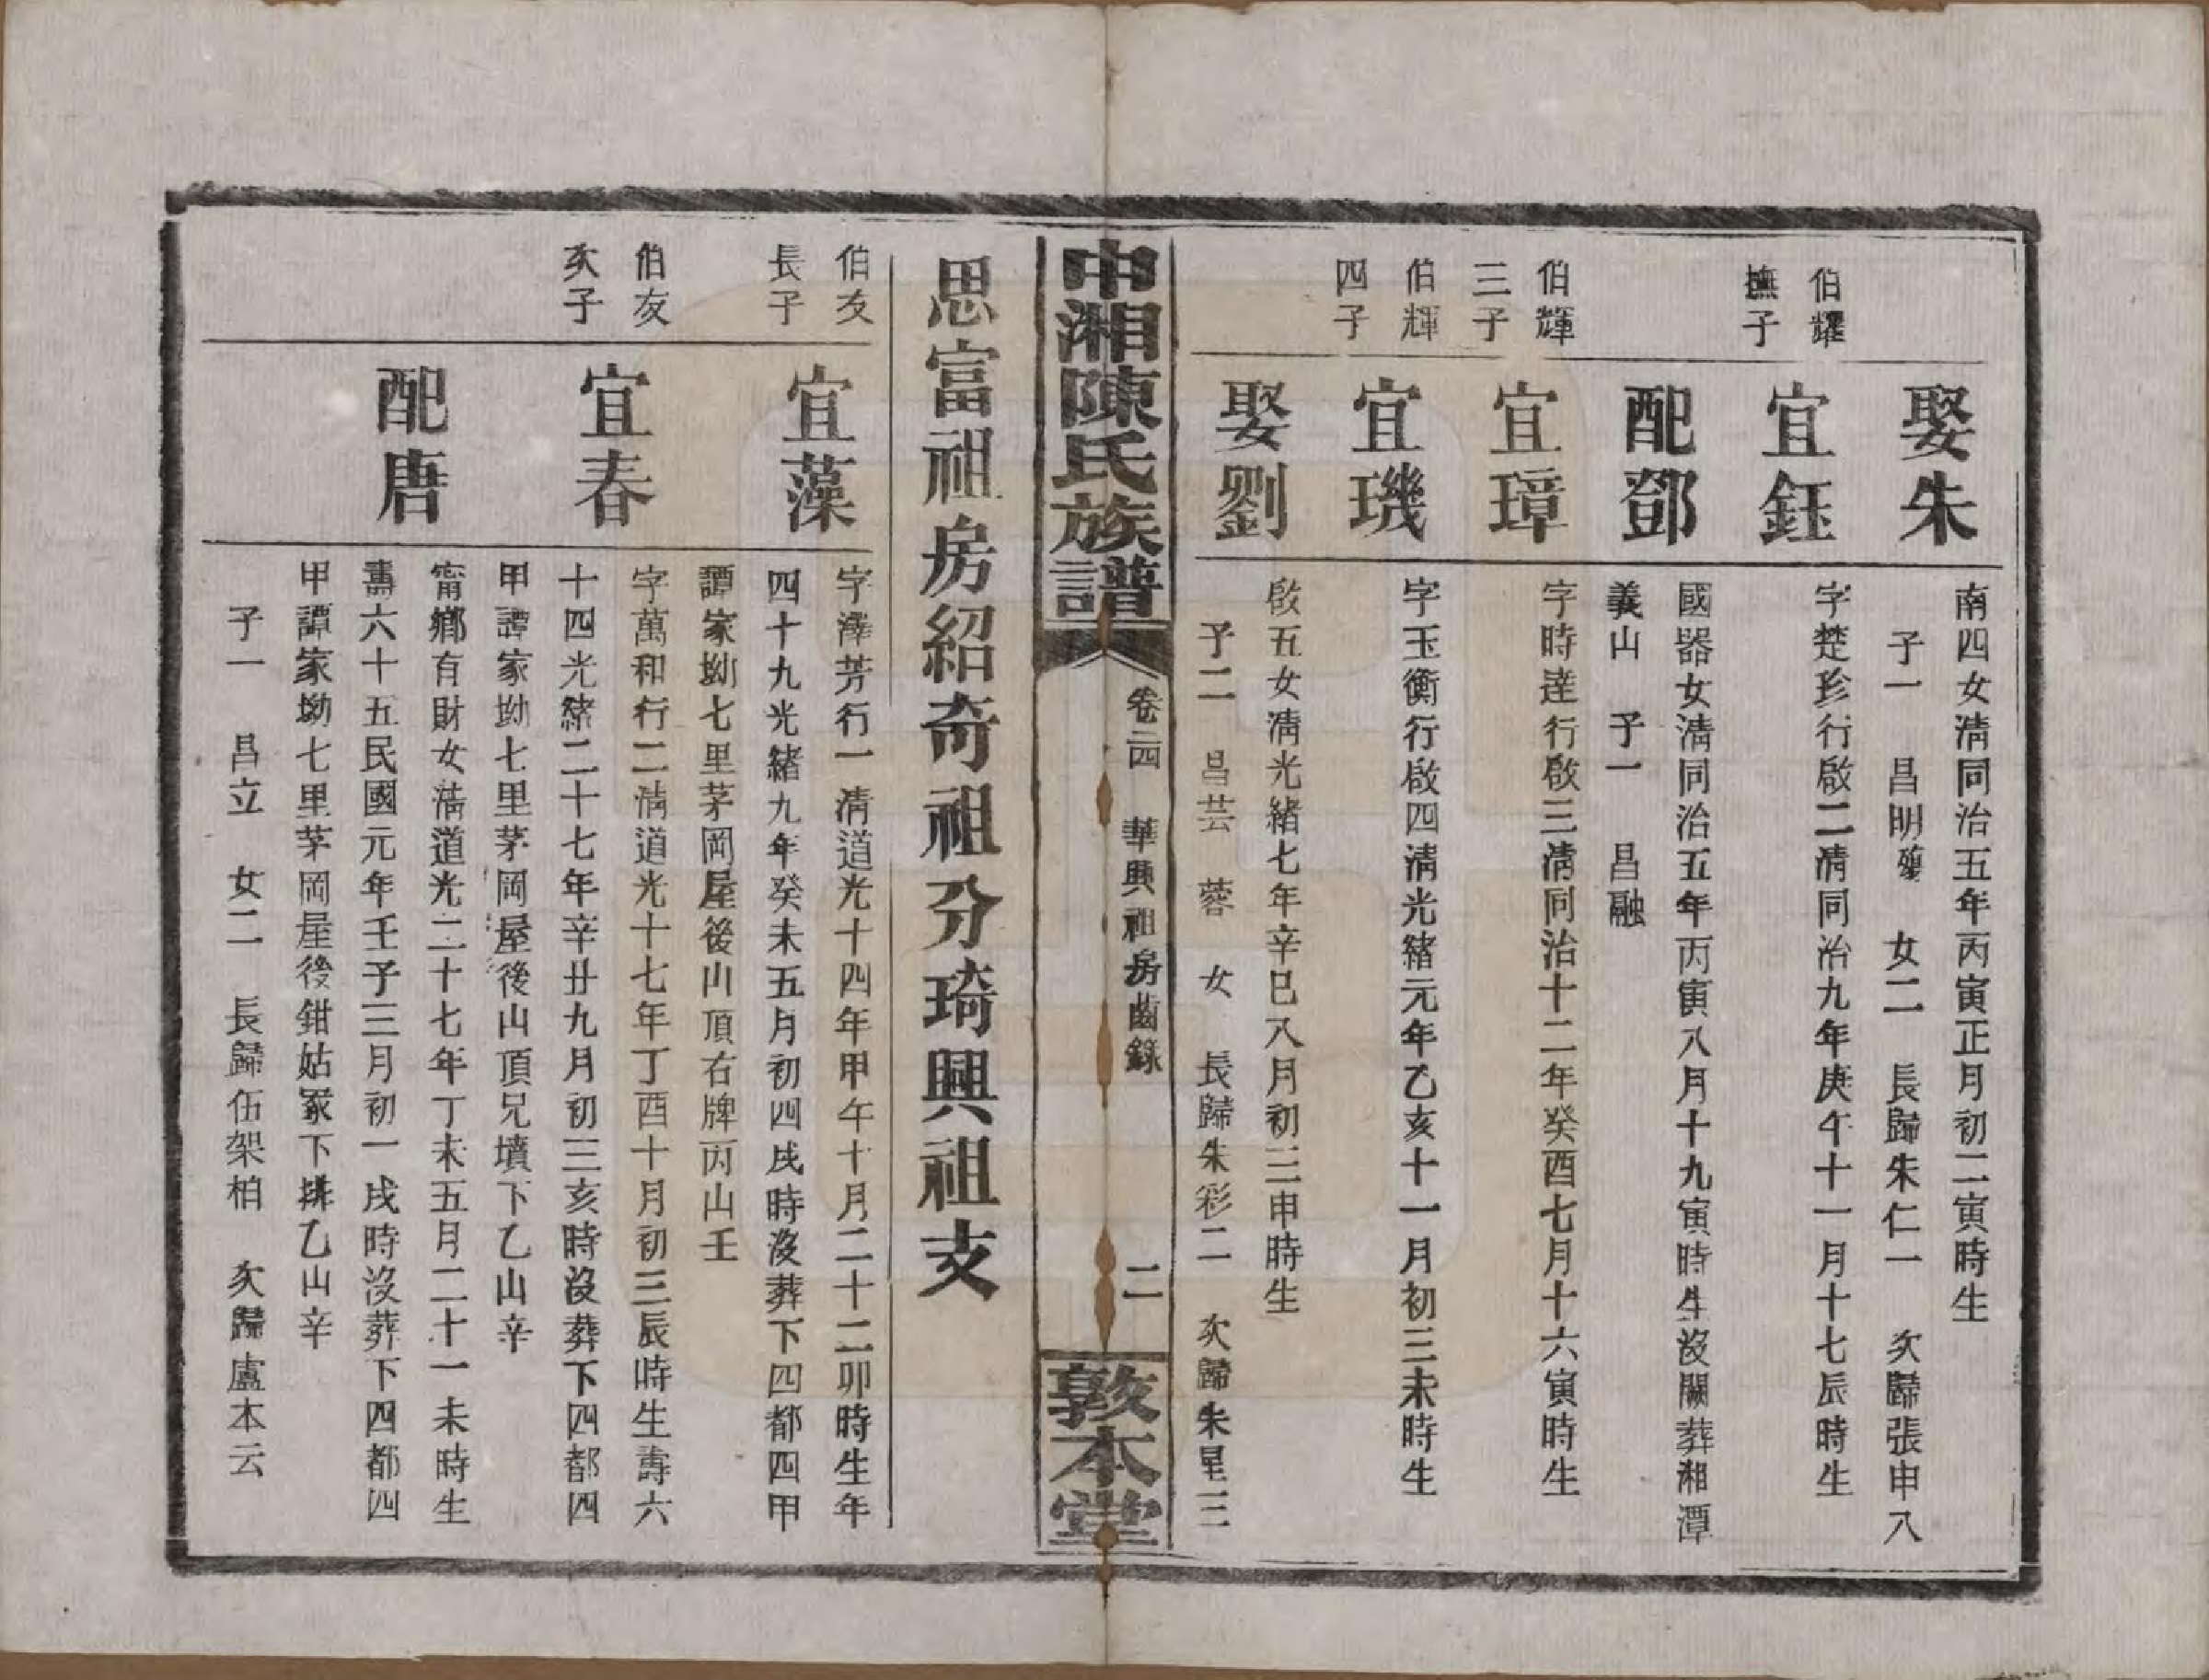 娶朱
南四女清同治五年丙寅正月初二寅時生
子一　昌明殤　女二　長歸朱仁一　次歸張申八
伯耀
撫子
宜鈺
字楚珍行啟二清同治九年庚午十一月十七辰時生
配鄧
國器女清同治五年丙寅八月十九寅時生沒闕葬湘潭
義山　子一　昌融
伯輝
三子
宜璋
字時達行啟三清同治十二年癸酉七月十六寅時生
伯輝
四子
宜璣
字玉衡行啟四清光緒元年乙亥十一月初三未時生
娶劉
啟五女清光緒七年辛巳八月初三申時生
子二　昌芸　蓉　女　長歸朱彩二　次歸朱星三
中湘陳氏族譜
卷四　華興祖房齒錄
二
敦本堂
思富祖房紹奇祖分琦興祖支
伯友
長子
宜藻
字澤芳行一清道光十四年甲午十月二十二卯時生年
四十九光緒九年癸未五月初四戌時沒葬下四都四甲
譚家坳七里茅岡屋後山頂右牌丙山壬
伯友
次子
宜春
字萬和行二清道光十七年丁酉十月初三辰時生壽六
十四光緒二十七年辛丑九月初三亥時沒葬下四都四
甲譚家坳七里茅岡屋後山頂兄墳下乙山辛
配唐
甯鄉有財女清道光二十七年丁未五月二十一未時生
壽六十五民國元年壬子三月初一戌時沒葬下四都四
甲譚家坳七里茅岡屋後鉗姑冢下排乙山辛
子一　昌立　女二　長歸伍架柏　次歸盧本云